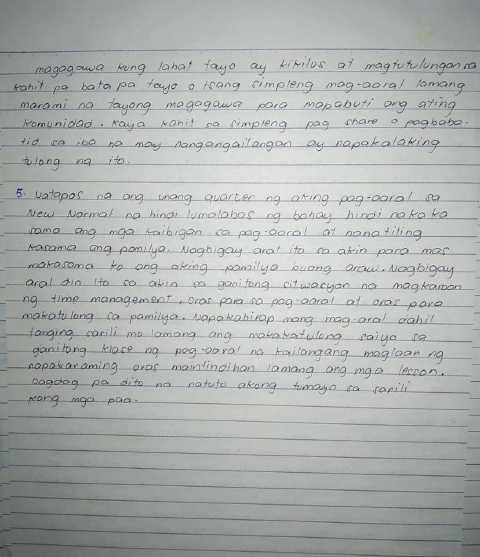 magagawa kung lahat tayo ay kikilos at magtutulungan sa
kahit pa bata pa tayo o isang simpleng mag-aaral lamang
marami na tayong magagawa para mapabuti ang ating
komunidad. Kaya kahit sa simpleng pag share o pagbaba-
tid sa iba na may nangangailangan ay napakalaking
tulong ng ito.
5. Natapos na ang unang quarter ng aking pag-aaral sa
New Normal na hindi lumalabas ng bahay hindi nakaka
sama ang mga kaibigan sa pag-aaral at nanatiling
kasama ang pamilya. Nagbigay aral ito sa akin para mas
makasama ko ang aking pamilya buong araw. Nagbigay
aral din ito sa akin sa ganitong sitwasyon na magkaroon
ng time management, oras para sa pag-aaral at oras para
makatulong sa pamilya. Napakahirap mang mag-aral dahil
tanging sarili mo lamang ang makakatulong saiyo sa
ganitong klase ng pag-aaral na kailangang maglaan ng
napakaraming oras maintindihan lamang ang mga lesson.
Dagdag pa dito na natuto akong tumayo sa sarili
kong mga paa.